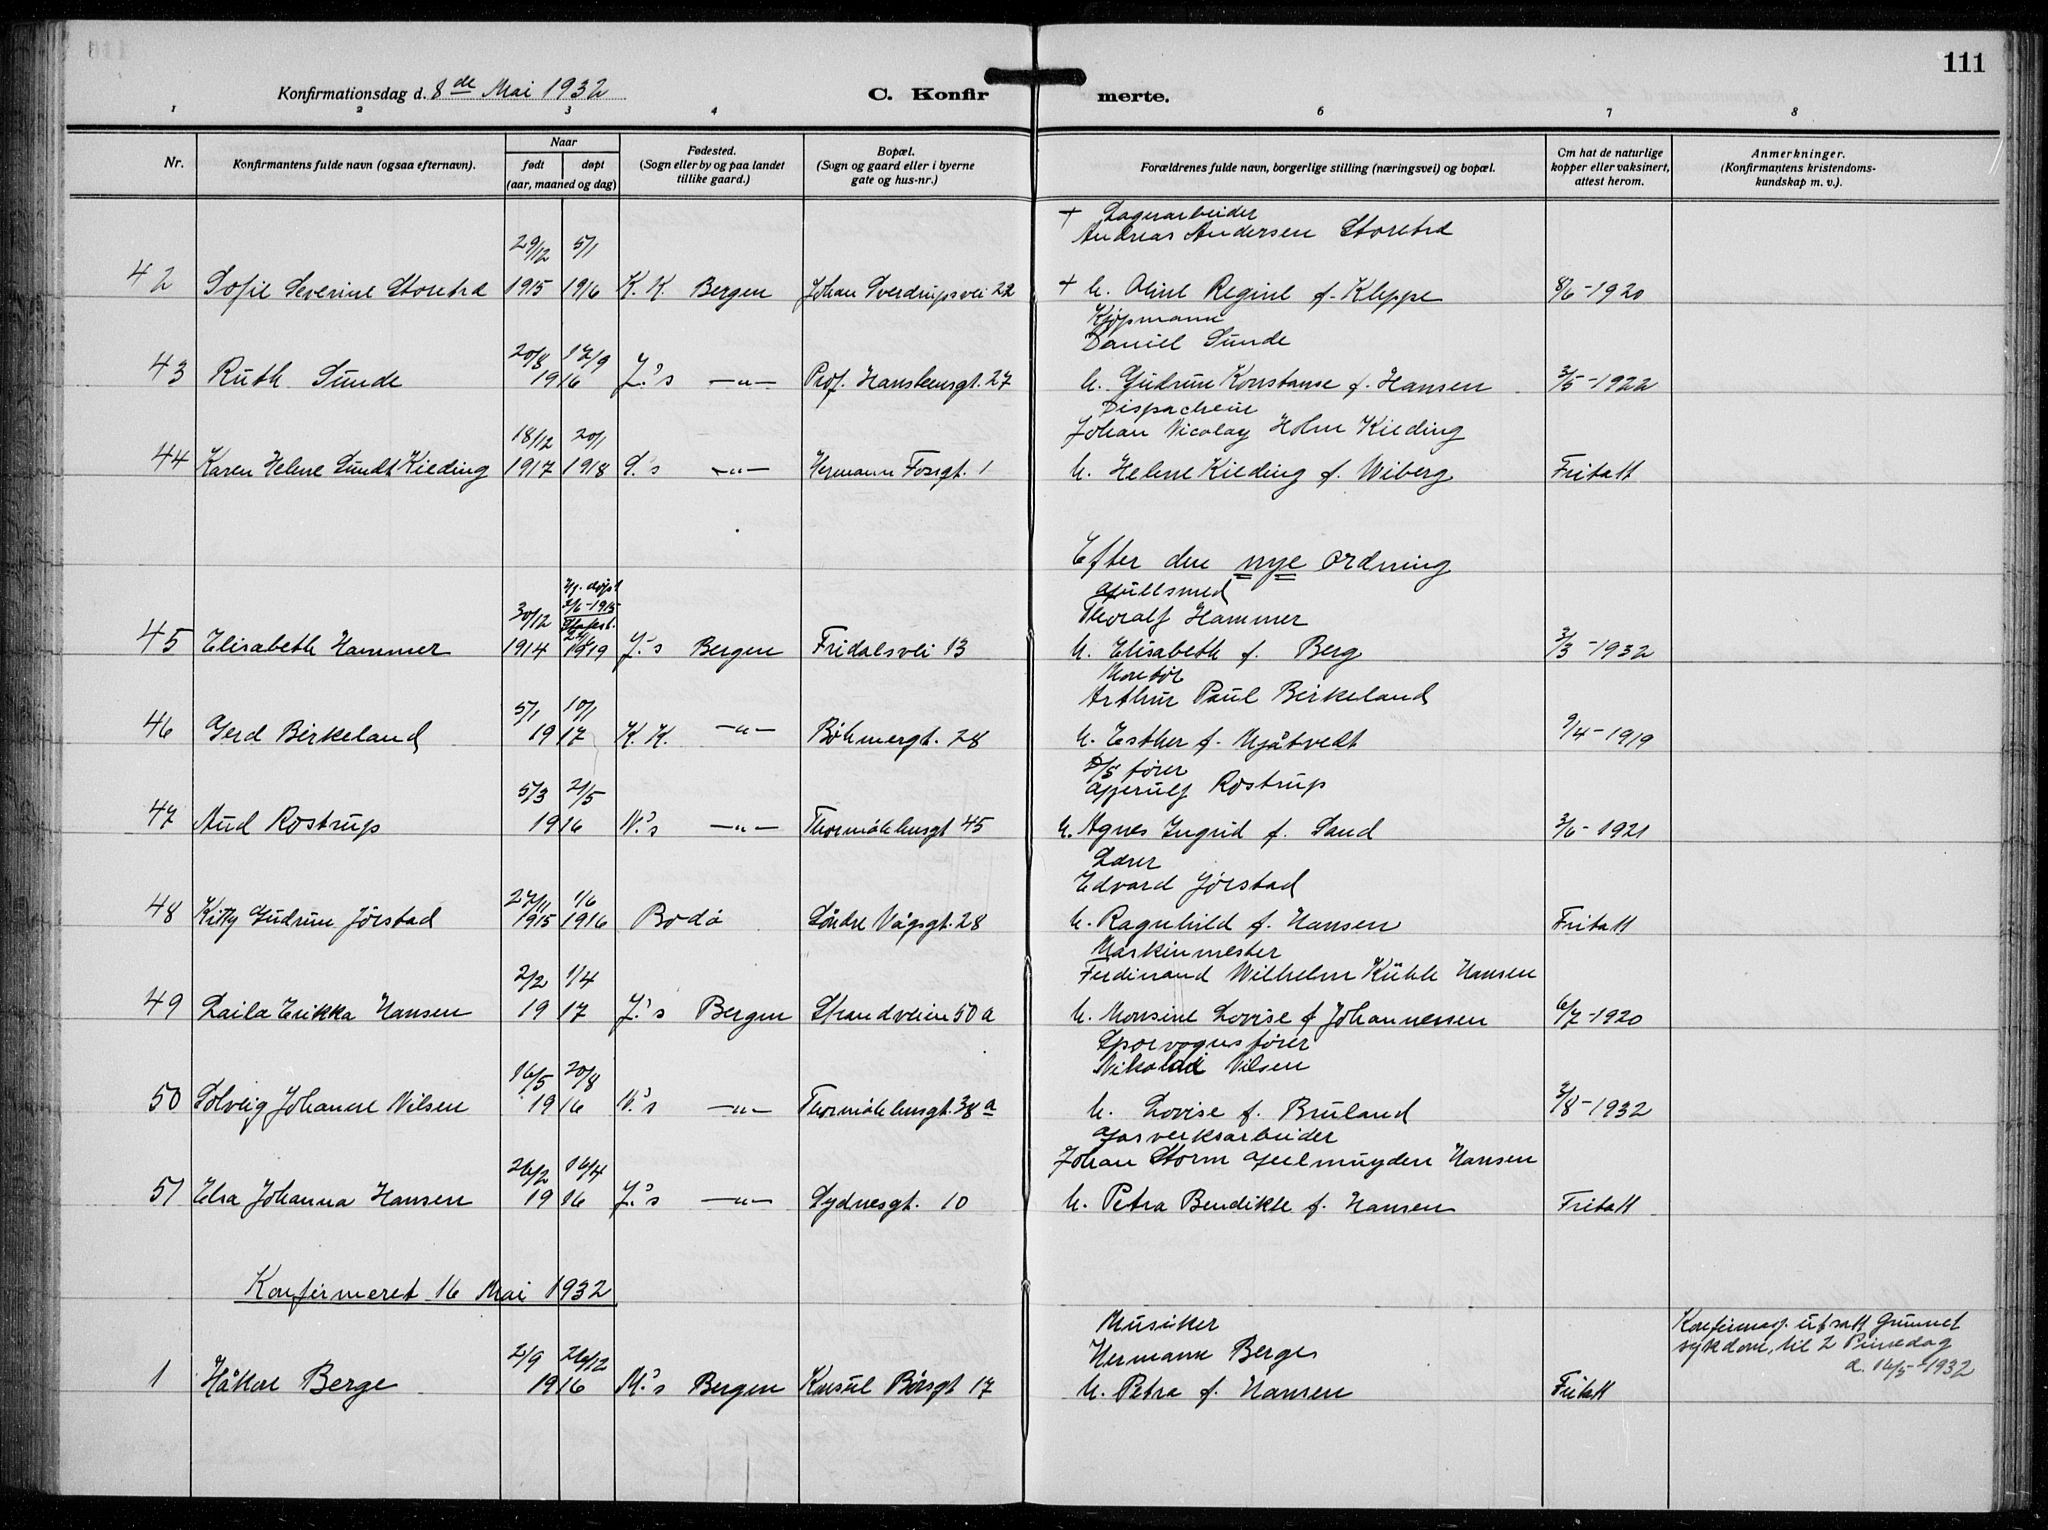 111
Konfirmationsdag d. 8de Mai 1932
C. Konfirmerte.
1 2 3 4 6 7 8
Nr.
Konfirmantens fulde navn (ogsaa efternavn).
Naar
født døpt
(aar, maaned og dag)
Fødested.
(Sogn eller by og paa landet
tillike gaard.)
Bopæl.
(Sogn og gaard eller i byerne
gate og hus-nr.)
Forældrenes fulde navn, borgerlige stilling (næringsvei) og bopæl.
Om hat de naturlige
kopper eller vaksinert,
attest herom.
Anmerkninger.
(Konfirmantens kristendoms-
kundskap m. v.).
+ Lagerarbeider
Andreas Andersen Storetra
29/12 5/1
42 Sofie Severine Storetra 1915 1916 K. K. Bergen Johan Sverdrupsvei 22 + h. Oline Regine f. Kleppe 8/6-1920
Kjøpmann
Daniel Sunde
20/8 17/9
43 Ruth Sunde 1916 J.'s -"- Prof. Hansteensgt. 27 h. Gudrun Konstanse f. Hansen 3/5-1922
Dispacheur
Johan Nicolay Holm Kielding
18/12 20/1
44 Karen Helene Sundt Kielding 1917 1918 S.'s -"- Hermann Fossgt. 1 h. Helene Kielding f. Wiberg Fritatt
Efter den nye ordning
Hj. døpt
Gullsmed
2/6-1915
30/12 Stafest.
Thoralf Hammer
45 Elisabeth Hammer 1914 1919 J.'s Bergen Fridalsvei 13 h. Elisabeth f. Berg 3/3-1932
Montør
Arthur Paul Birkeland
5/1 10/1
46 Gerd Birkeland 1917 K. K. -"- Bøhmergt. 28 h. Esther f. Mjåtvedt 9/4-1919
D/S fører
Gjerulf Rostrup
5/3 2/5
47 Aud Rostrup 1916 N.'s -"- Thormøhlensgt 45 h. Agnes Ingrid f. Sand 3/6-1921
Lærer
Edvard Jørstad
27/11 1/6
48 Kitty Gudrun Jørstad 1915 1916 Bodø Søndre Vågsgt. 28 h. Ragnhild f. Hansen Fritatt
Maskinmester
Ferdinand Wilhelm Kühle Hansen
2/2 1/4
49 Laila Erikka Hansen 1917 J.'s Bergen Strandveien 50 a h. Monsine Lovise f Johannessen 6/7-1920
Sporvognsfører
Nikolai Nilsen
16/5 20/8
50 Solveig Johanne Nilsen 1916 N.'s -"- Thormøhlensgt. 38 a h. Lovise f. Bruland 3/8-1932
Gasverksarbeider
Johan Storm Geelmuyden Hansen
26/2 16/4
51 Elsa Johanna Hansen 1916 J.'s -"- Sydnesgt. 10 h. Petra Bendikte f. Hansen Fritatt
Konfirmeret 16 Mai 1932
Musiker
Hermann Berge
Konfirmasj. utsatt grunnet
sykdom, til 2 Pinsedag
d. 16/5-1932
2/9 26/12
1 Håkon Berge 1916 M.'s Bergen Konsul Børsgt 17 h. Petra f. Hansen Fritatt